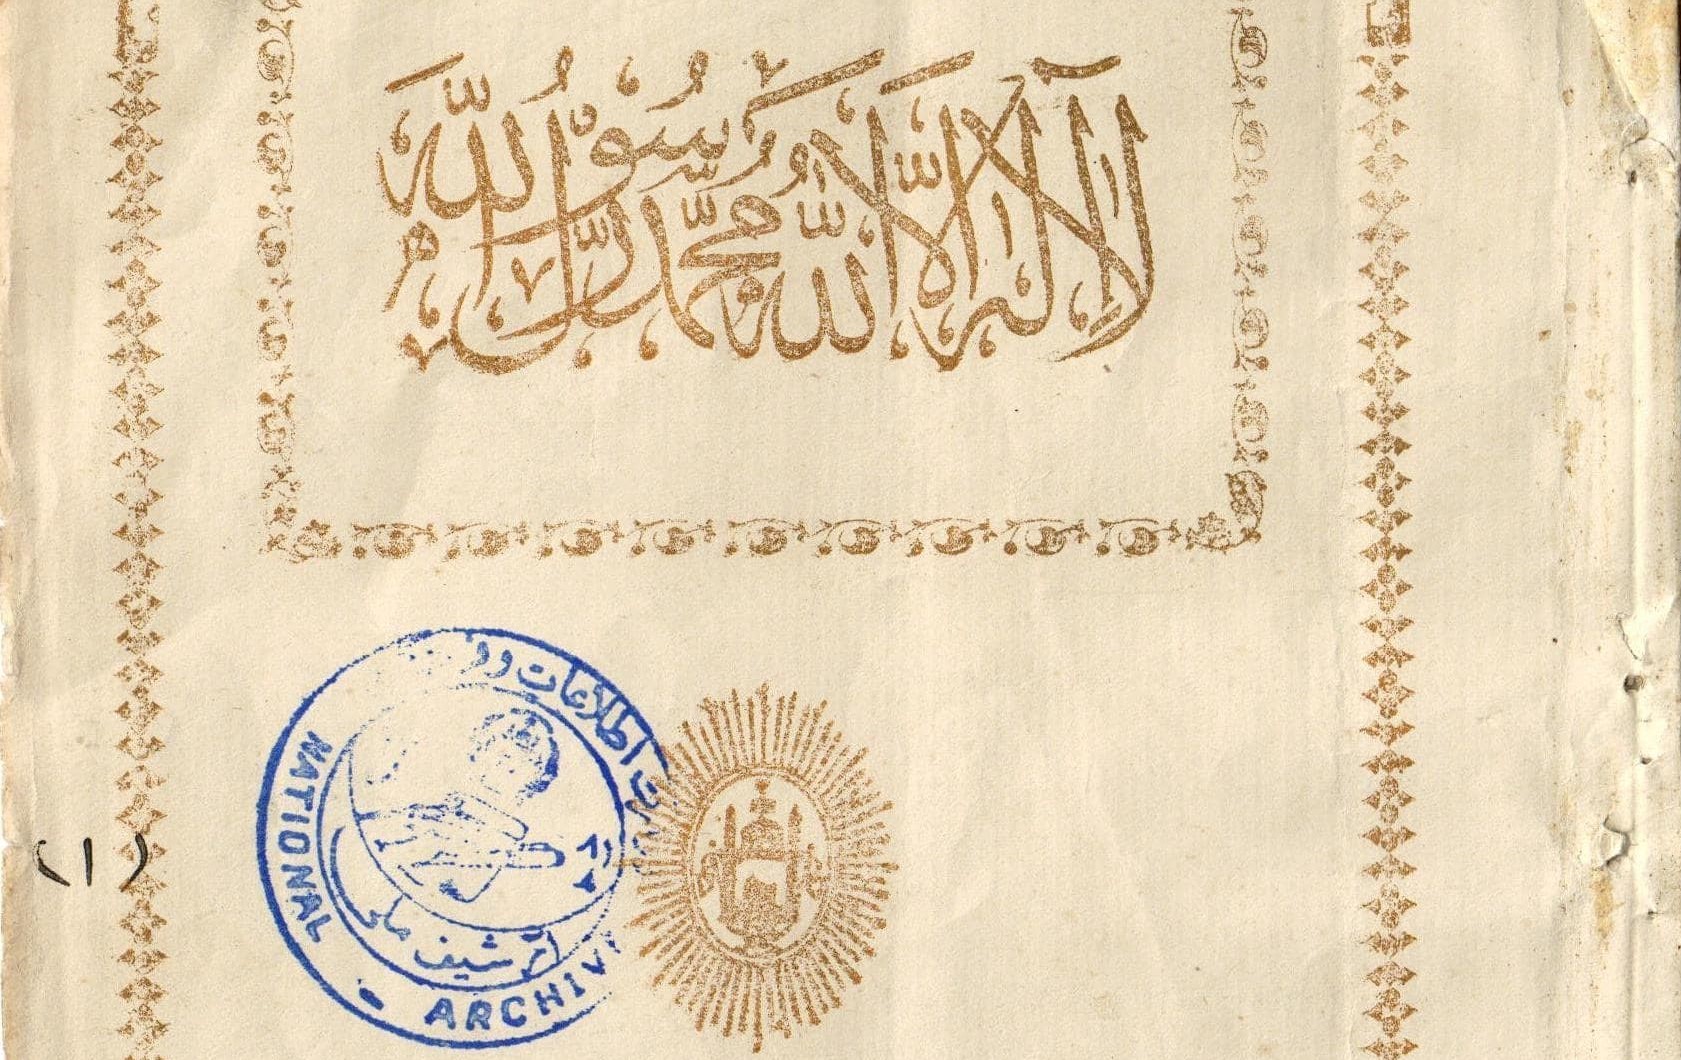 لا إله إلا الله محمد رسول الله
اطلاعات و
آرشیف ملی
NATIONAL
ARCHIV
(۱)